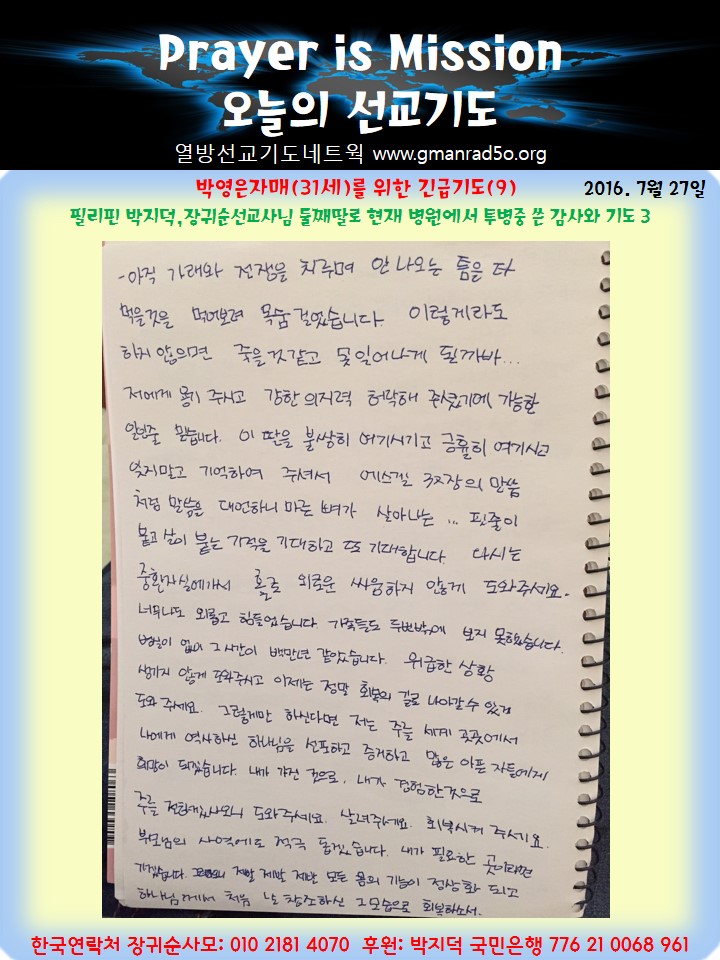 Prayer is Mission
오늘의 선교기도
열방선교기도네트웍 www.gmanrad5o.org
박영은자매(31세)를 위한 긴급기도(9) 2016. 7월 27일
필리핀 박지덕,장귀순선교사님 둘째딸로 현재 병원에서 투병중 쓴 감사와 기도 3
-아직 가래와 전쟁을 치루며 안 나오는 틈을 타
먹을것을 먹어보려 목숨 걸었습니다. 이렇게라도
하지 않으면 죽을것같고 못일어나게 될까바...
저에게 용기 주시고 강한 의지력 허락해 주셨기에 가능한
일인줄 믿습니다. 이 딸을 불쌍히 여기시기고 긍휼히 여기시고
잊지말고 기억하여 주셔서 에스겔 37장의 말씀
처럼 말씀을 대언하니 마른 뼈가 살아나는 ... 핏줄이
붙고 살이 붙는 기적을 기대하고 또 기대합니다. 다시는
중환자실에가서 홀로 외로운 싸움하지 않게 도와주세요.
너무나도 외롭고 힘들었습니다. 가족들도 두번밖에 보지 못했습니다.
없이 그 시간이 백만년 같았습니다. 위급한 상황
생기지 않게 도와주시고 이제는 정말 회복의 길로 나아갈 수 있게
도와 주세요. 그렇게만 하신다면 저는 주늘 세계 곳곳에서
나에게 역사하신 하나님을 선포하고 증거하고 많은 아픈 자들에게
희망이 되겠습니다. 내가 가진 것으로, 내가 경험한것으로
주를 전하겠사오니 도와주세요. 살려주세요. 회복시켜 주세요.
부모님의 사역에도 적극 돕겠습니다. 내가 필요한 곳이라면
가겠습니다. 제발 제발 제발 모든 몸의 기능이 정상화 되고
하나님께서 처음 날 창조하신 그모습으로 회복하소서.
한국연락처 장귀순사모: 010 2181 4070 후원: 박지덕 국민은행 776 21 0068 961